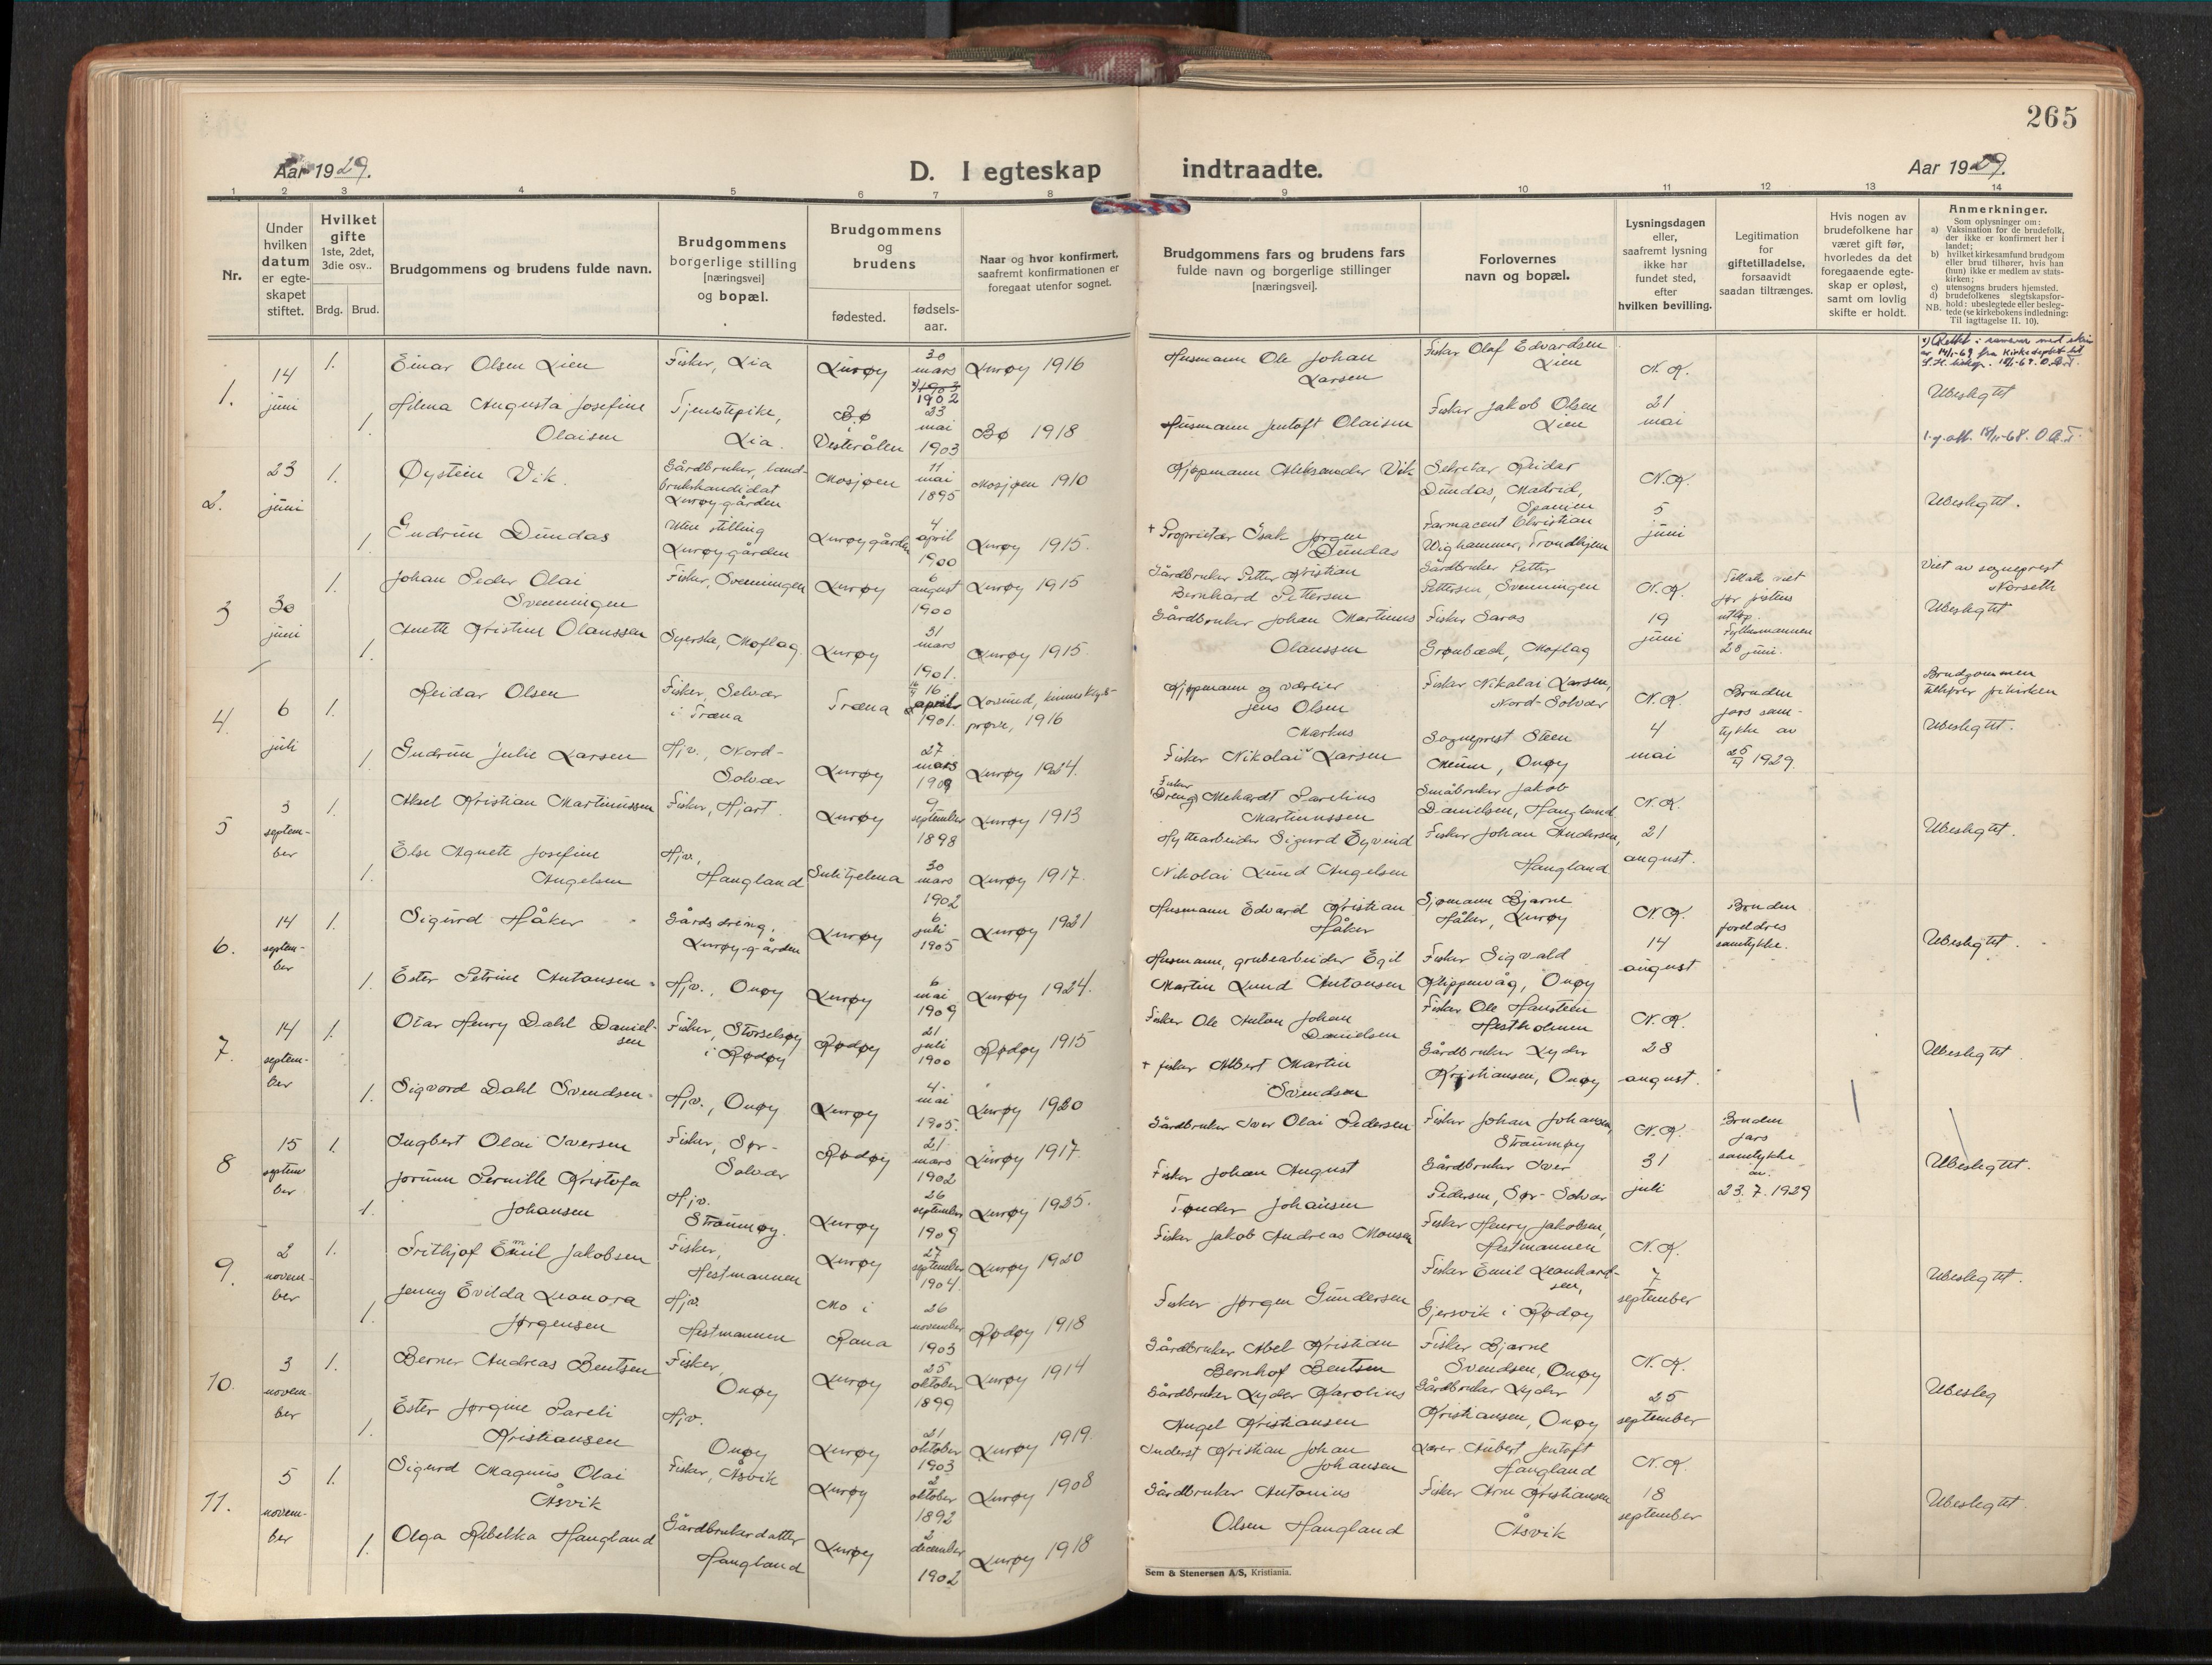 265
Aar 1929.
D. I egteskap indtraadte.
Aar 1929.
1 2 3 4 5 6 7 8 9 10 11 12 13 14
Nr.
Under hvilken datum er egteskapet stiftet.
Hvilket gifte 1ste, 2det, 3die osv..
Brdg. Brud.
Brudgommens og brudens fulde navn.
Brudgommens borgerlige stilling [næringsvei] og bopæl.
Brudgommens og brudens
fødested.
fødsels-aar.
Naar og hvor konfirmert, saafremt konfirmationen er foregaat utenfor sognet.
Brudgommens fars og brudens fars fulde navn og borgerlige stillinger [næringsvei].
Forlovernes navn og bopæl.
Lysningsdagen eller, saafremt lysning ikke har fundet sted, efter hvilken bevilling.
Legitimation for giftetilladelse, forsaavidt saadan tiltrænges.
Hvis nogen av brudefolkene har været gift før, hvorledes da det foregaaende egteskap er opløst, samt om lovlig skifte er holdt.
Anmerkninger.
Som oplysninger om:
a) Vaksination for de brudefolk, der ikke er konfirmert her i landet;
b) hvilket kirkesamfund brudgom eller brud tilhører, hvis han (hun) ikke er medlem av statskirken;
c) utensogns bruders hjemsted.
d) brudefolkenes slegtskapsforhold: ubeslegtede eller beslegtede (se kirkebokens indledning:
NB. Til iagttagelse II. 10).
1. 14 juni
1. Einar Olsen Lien
Fisker, Lia
Lurøy
30 mars 1903 1902
Lurøy 1916
Husmann Ole Johan Larsen
Fisker Olaf Edvardsen Lien
N. K. 21 mai
Ubeslegtet
1. Helena Augusta Josefine Olaisen
Tjenestepike, Lia.
Bø Vesterålen
23 mai 1903
Bø 1918
Husmann Jentoft Olaisen
Fisker Jakob Olsen Lien
2. 23 juni
1. Øystein Vik.
Gårdbruker, landbrukskandidat Lurøygården
Mosjøen
11 mai 1895
Mosjøen 1910
Kjøpmann Aleksander Vik
Sekretær Reidar Dundas, Madrid, Spanien
N.K. 5 juni
Ubeslegtet.
1. Gudrun Dundas
Uten stilling Lurøygården
Lurøygården
4 april 1900
Lurøy 1915.
+ Proprietær Isak Jørgen Dundas
Farmacent Christian Wighammer, Trondhjem
3 30 juni
1. Johan Peder Olai Svenningen
Fisker, Svenningen
Lurøy
6 august 1900
Lurøy 1915
Gårdbruker Petter Kristian Bernhard Pettersen
Gårdbruker Petter Pettersen, Svenningen
N. K. 19 juni
Fylkesmannen 28 juni.
Viet av sogneprest Norseth
Ubeslegtet
1. Anette Kristine Olaussen
Syerske, Moflag.
Lurøy
31 mars 1901.
Lurøy 1915.
Gårdbruker Johan Martinus Olaussen
Fisker Saras Grønbæck, Moflag
4. 6 juli
1. Reidar Olsen
Fisker, Selvær i Træna
Træna
16 april 1901.
Lovund, 1916
Kjøpmann og væreier Jens Olsen Marhus
Fisker Nikolai Larsen, Nord-Solvær
N. K. 4 mai
Bruden fars samtykke av 25/4 1929.
Brudgommen tilhører frikirken
Ubeslegtet.
1 Gudrun Julie Larsen
Hjv., Nord-Solvær
Lurøy
27 mars 1909
Lurøy 1924.
Fisker Nikolai Larsen
Sogneprest Steen Onøy
5 3 september
1. Aksel Kristian Martinussen
Fisker, Hjart.
Lurøy
9 september 1898
Lurøy 1913
Fisker (Dreng) Mehardt Parelius Martinussen
Småbruker Jakob Danielsen, Haugland
N. K. 21 august.
Ubeslegtet.
1. Else Agnete Josefine Angelsen
Hjv., Haugland
Sulitjelma
30 mars 1902
Lurøy 1917.
Hyttearbeider Sigurd Eyvind Nikolai Lund Angelsen
Fisker Johan Andersen, Haugland
6. 14 september
1. Sigurd Håker
Gårdsdreng, Lurøy-gården
Lurøy
6 juli 1905
Lurøy 1921
Husmann Edvard Kristian Håker
Sjømann Bjarne Håker, Lurøy
N. K. 14 august
Bruden foreldres samtykke.
Ubeslegtet.
1. Ester Petrine Antonsen
Hjv., Onøy
Lurøy
6 mai 1909
Lurøy 1924.
Husmann, grubearbeider Egil Martin Lund Antonsen
Fisker Sigvald Klippenvåg, Onøy
7. 14 september
1. Otar Henry Dahl Danielsen
Fisker, Storselsøy i Rødøy
Rødøy
21 juli 1900
Rødøy 1915
Fisker Ole Anton Johan Danielsen
Fisker Ole Hanstein Hestholmen
N. K. 28 august.
Ubeslegtet
1. Sigvord Dahl Svendsen
Hjv., Onøy
Lurøy
4. mai 1905.
Lurøy 1920
+ fisker Albert Martin Svendsen
Gårdbruker Lyder Kristiansen, Onøy
8 15 september
1. Ingbert Olai Iversen
Fisker, Sør-Solvær
Rødøy
21. mars 1902
Lurøy 1917.
Gårdbruker Iver Olai Pedersen
Fisker Johan Johansen, Straumøy
N. K. 31 juli
Bruden fars samtykke av 23.7.1929
Ubeslegtet.
1. Jorunn Pernille Kristofa Johansen
Hjv. Straumøy.
Lurøy
26 september 1909
Lurøy 1925.
Fisker Johan August Tønder Johansen
Gårdbruker Iver Pedersen, Sør-Solvær
9. 2 november
1. Frithjof Emil Jakobsen
Fisker, Hestmannen
Lurøy
27 september 1904.
Lurøy 1920
Fisker Jakob Andreas Monsen
Fisker Henry Jakobsen, Hestmannen
N. K. 7 september
Ubeslegtet.
1. Jenny Evilda Leonora Jørgensen
Hjv. Hestmannen
Mo i Rana
26 november 1903
Rødøy 1918
Fisker Jørgen Gundersen
Fisker Emil Leonhardsen, Gjersvik i Rødøy
10. 3 november
1. Berner Andreas Bentsen
Fisker, Onøy
Lurøy
25 oktober 1899
Lurøy 1914
Gårdbruker Abel Kristian Bernhof Bentsen
Fisker Bjarne Svendsen, Onøy
N. K. 25 september
Ubesleg
1. Ester Jørgine Pareli Kristiansen
Hjv. Onøy
Lurøy
21 oktober 1903
Lurøy 1919.
Gårdbruker Lyder Karolius Angel Kristiansen
Gårdbruker Lyder Kristiansen, Onøy
11. 5 november
1. Sigurd Magnus Olai Åsvik
Fisker, Åsvik
Lurøy
2 oktober 1892
Lurøy 1908
Inderst Kristian Johan Johansen
Lærer Aubert Jentoft Haugland
N. K. 18 september
Ubeslegtet.
1. Olga Rebekka Haugland
Gårdbrukerdatter Haugland
Lurøy
2 december 1902
Lurøy 1918
Gårdbruker Antonius Olsen Haugland
Fisker Arne Kristiansen Åsvik
Sem & Stenersen A/S, Kristiania.